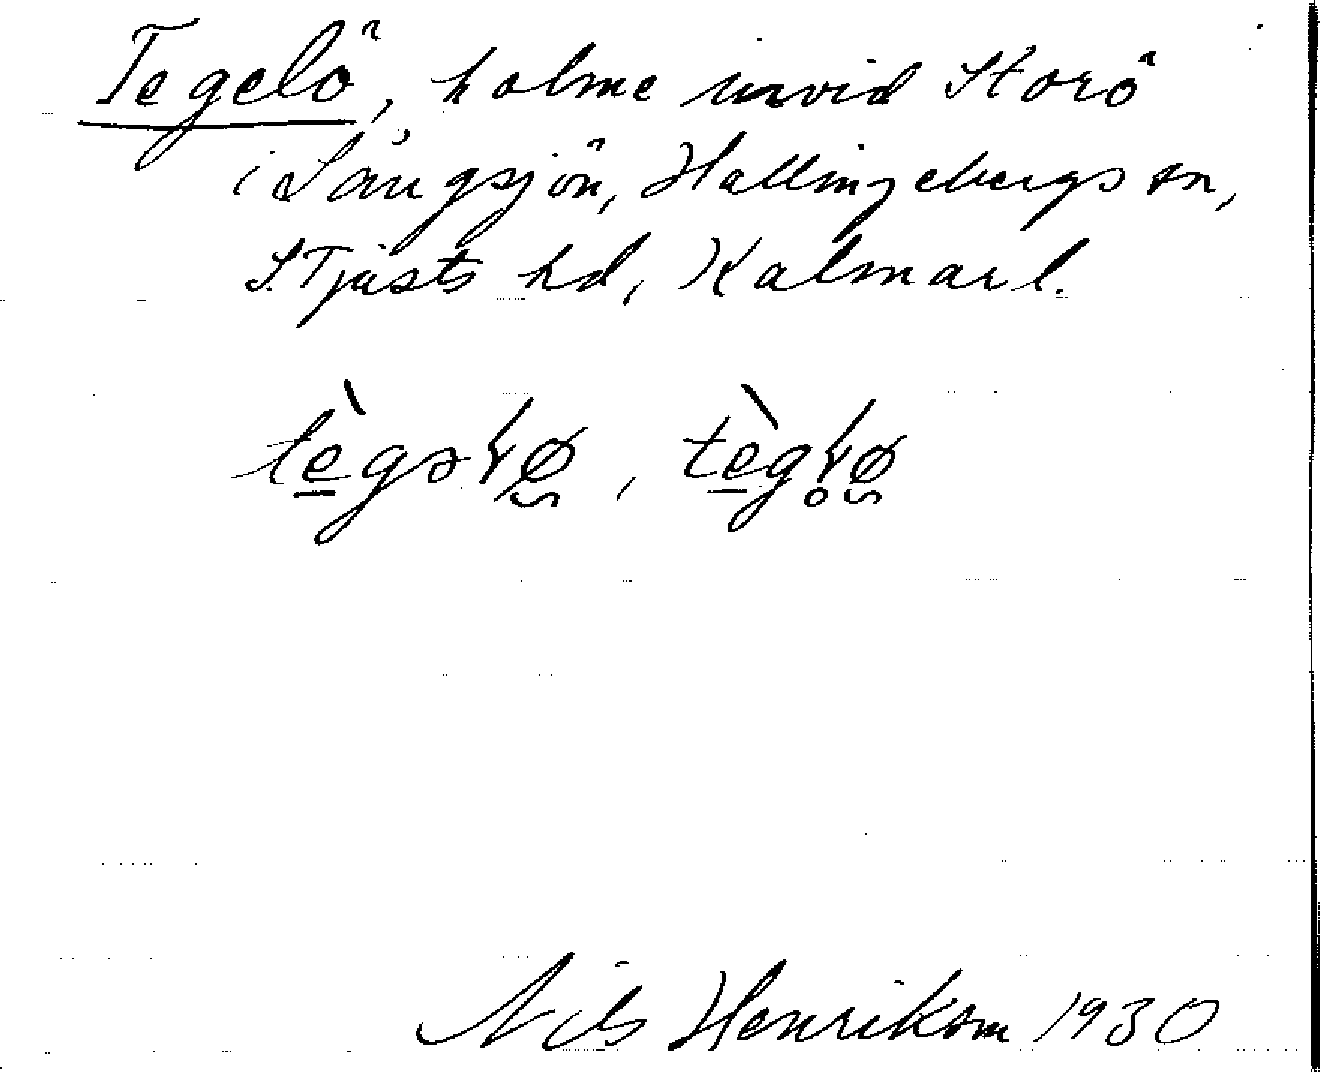 Tegelö, holme invid Storö
i Långsjön, Hallingebergs sn,
S. Tjusts hd, Kalmar l.
Nils Henrikson 1930